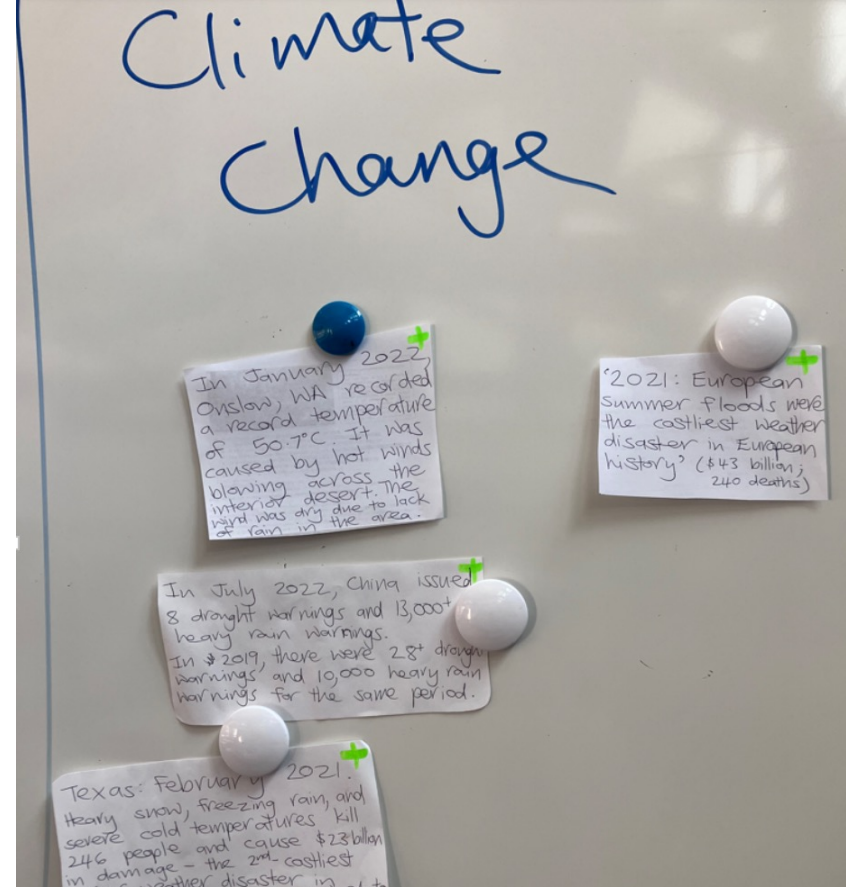 Climate
Change
In January 2022,
Onslow, WA recorded
a record temperature
of 50.7°C. It was
caused by hot winds
blowing across the
interior desert. The
wind was dry due to lack
of rain in the area.
'2021: European
summer floods were
the costliest weather
disaster in European
history' ($43 billion;
240 deaths)
In July 2022, China issued
8 drought warnings and 13,000+
heavy rain warnings.
In 2019, there were 28+ drough
warnings and 10,000 heavy rain
warnings for the same period.
Texas: February 2021.
Heavy snow, freezing rain, and
severe cold temperatures kill
246 people and cause $23 billion
in damage – the 2nd-costliest
disaster in